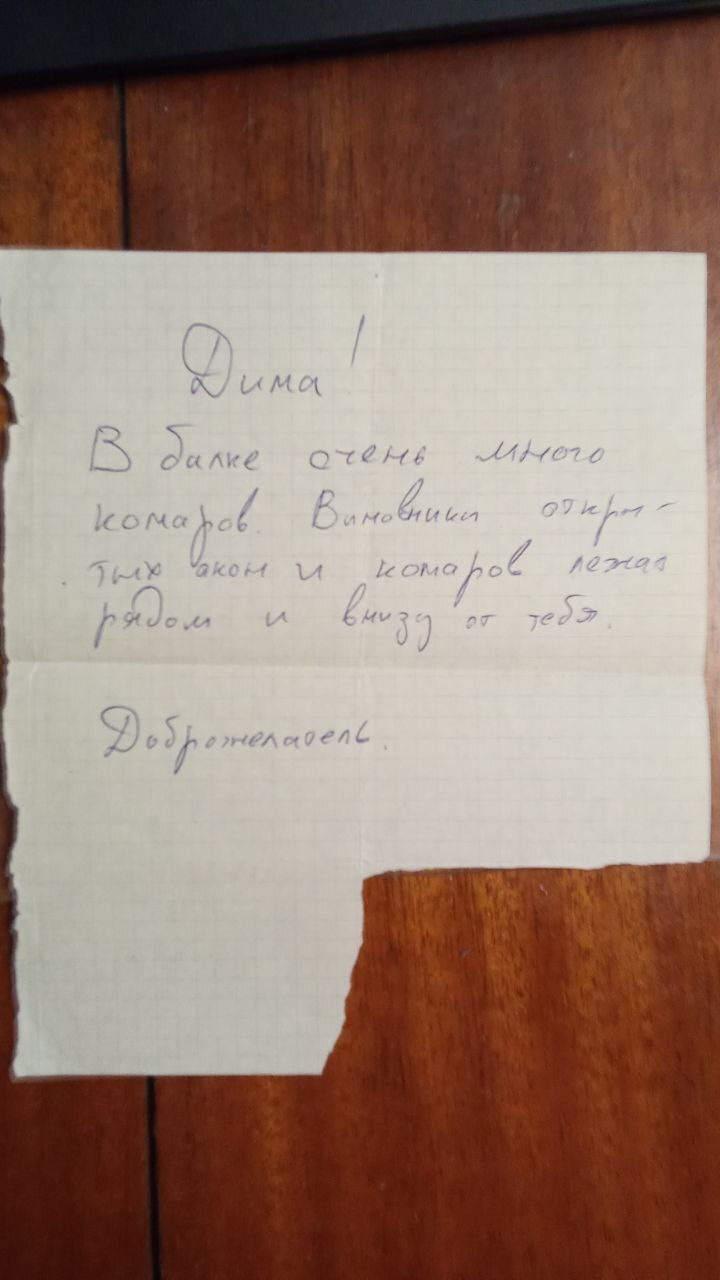 Дима!
В балке очень много
комаров. Виновники откры-
тых окон и комаров лежат
рядом и внизу от тебя.
Доброжелатель.